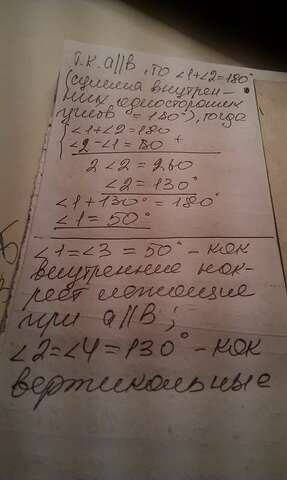 Т.к. a||B, то ∠1+∠2=180°
(сумма внутрен-
них односторонних
углов =180°), тогда
{∠1+∠2=180
∠2-∠1=80 +
2∠2=260
∠2=130°
∠1+130°=180°
∠1=50°
∠1=∠3=50° - как
внутренние нак-
рест лежащие
при a||B;
∠2=∠4=130° - как
вертикальные